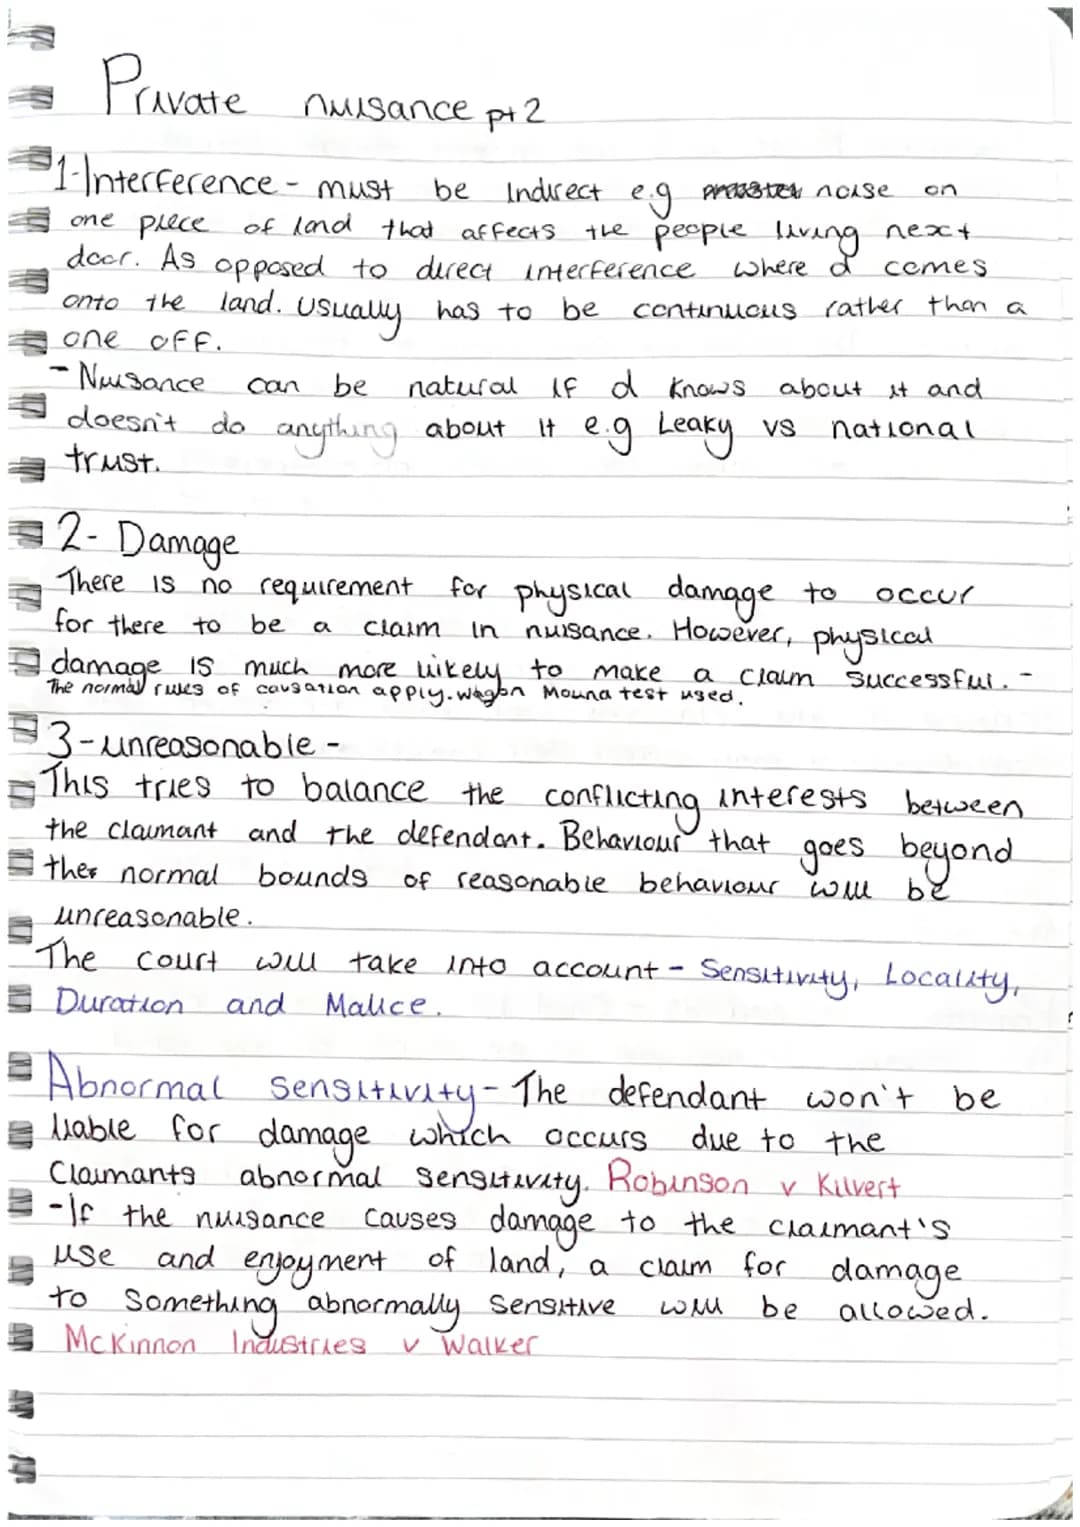 Private nuisance pt 2
1-Interference - must be Indirect e.g noise on
one piece of land that affects the people living next
door. As opposed to direct interference where d comes
onto the land. Usually has to be continuous rather than a
one off.
- Nuisance can be natural if d knows about it and
doesn't do anything about it e.g Leaky vs national
trust.
2- Damage
There is no requirement for physical damage to occur
for there to be a claim in nuisance. However, physical
damage is much more likely to make a claim successful. -
The normal rules of causation apply. Wagon Mound test used.
3-unreasonable -
This tries to balance the conflicting interests between
the claimant and the defendant. Behaviour that goes beyond
the normal bounds of reasonable behaviour will be
unreasonable.
The court will take into account - Sensitivity, Locality,
Duration and Malice.
Abnormal sensitivity - The defendant won't be
liable for damage which occurs due to the
Claimants abnormal sensitivity. Robinson v Kilvert
-If the nuisance causes damage to the claimant's
use and enjoyment of land, a claim for damage
to something abnormally sensitive will be allowed.
McKinnon Industries v Walker